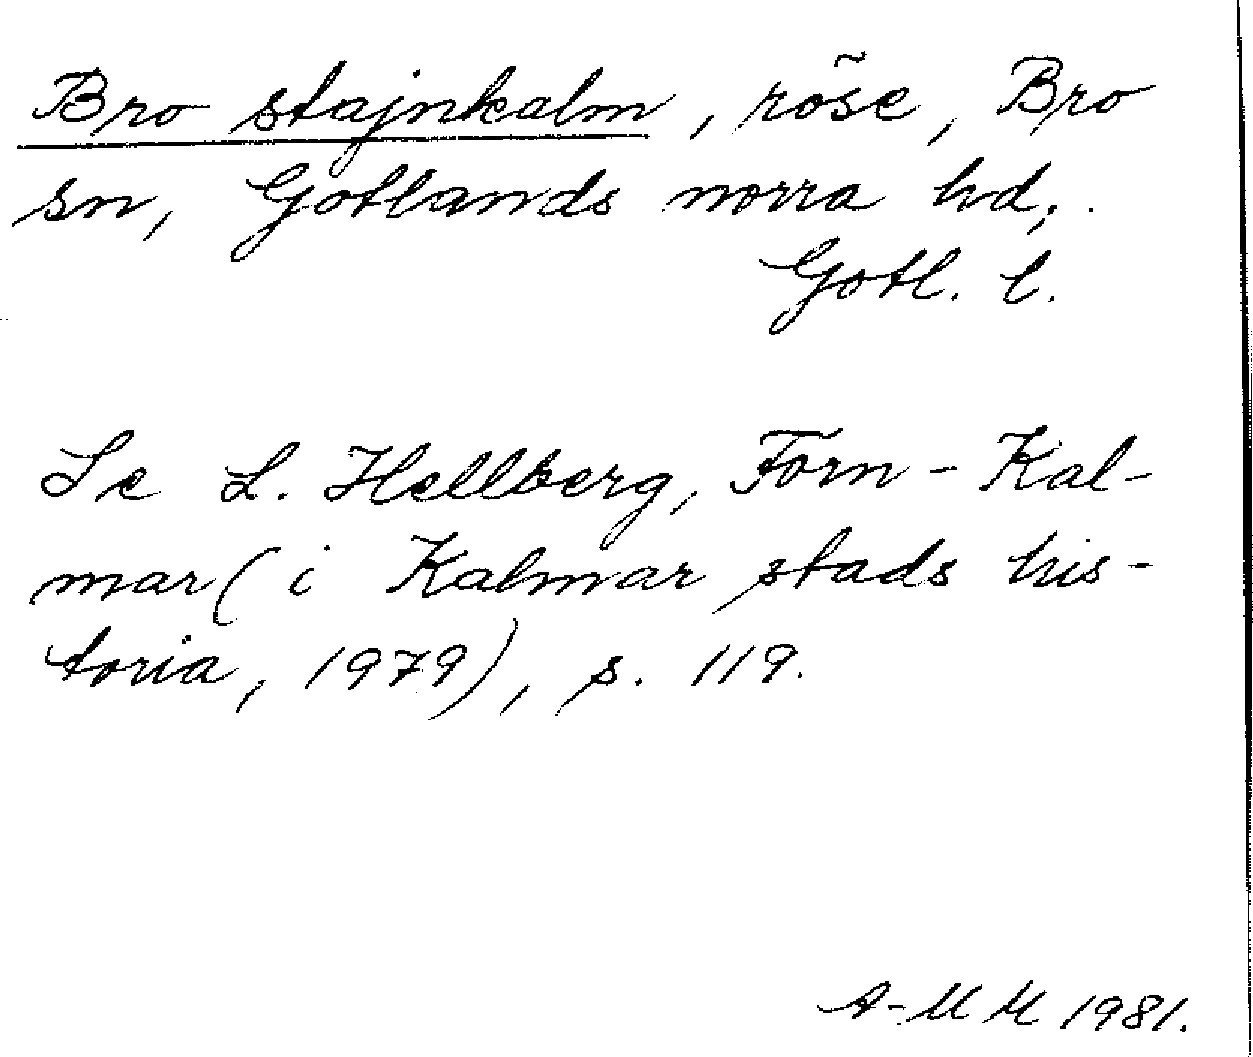 Bro stajnkalm, röse, Bro
sn, Gotlands norra hd,
Gotl. l.
Se L. Hellberg, Forn-Kal-
mar (i Kalmar stads his-
toria, 1979), s. 119.
A-MM 1981.